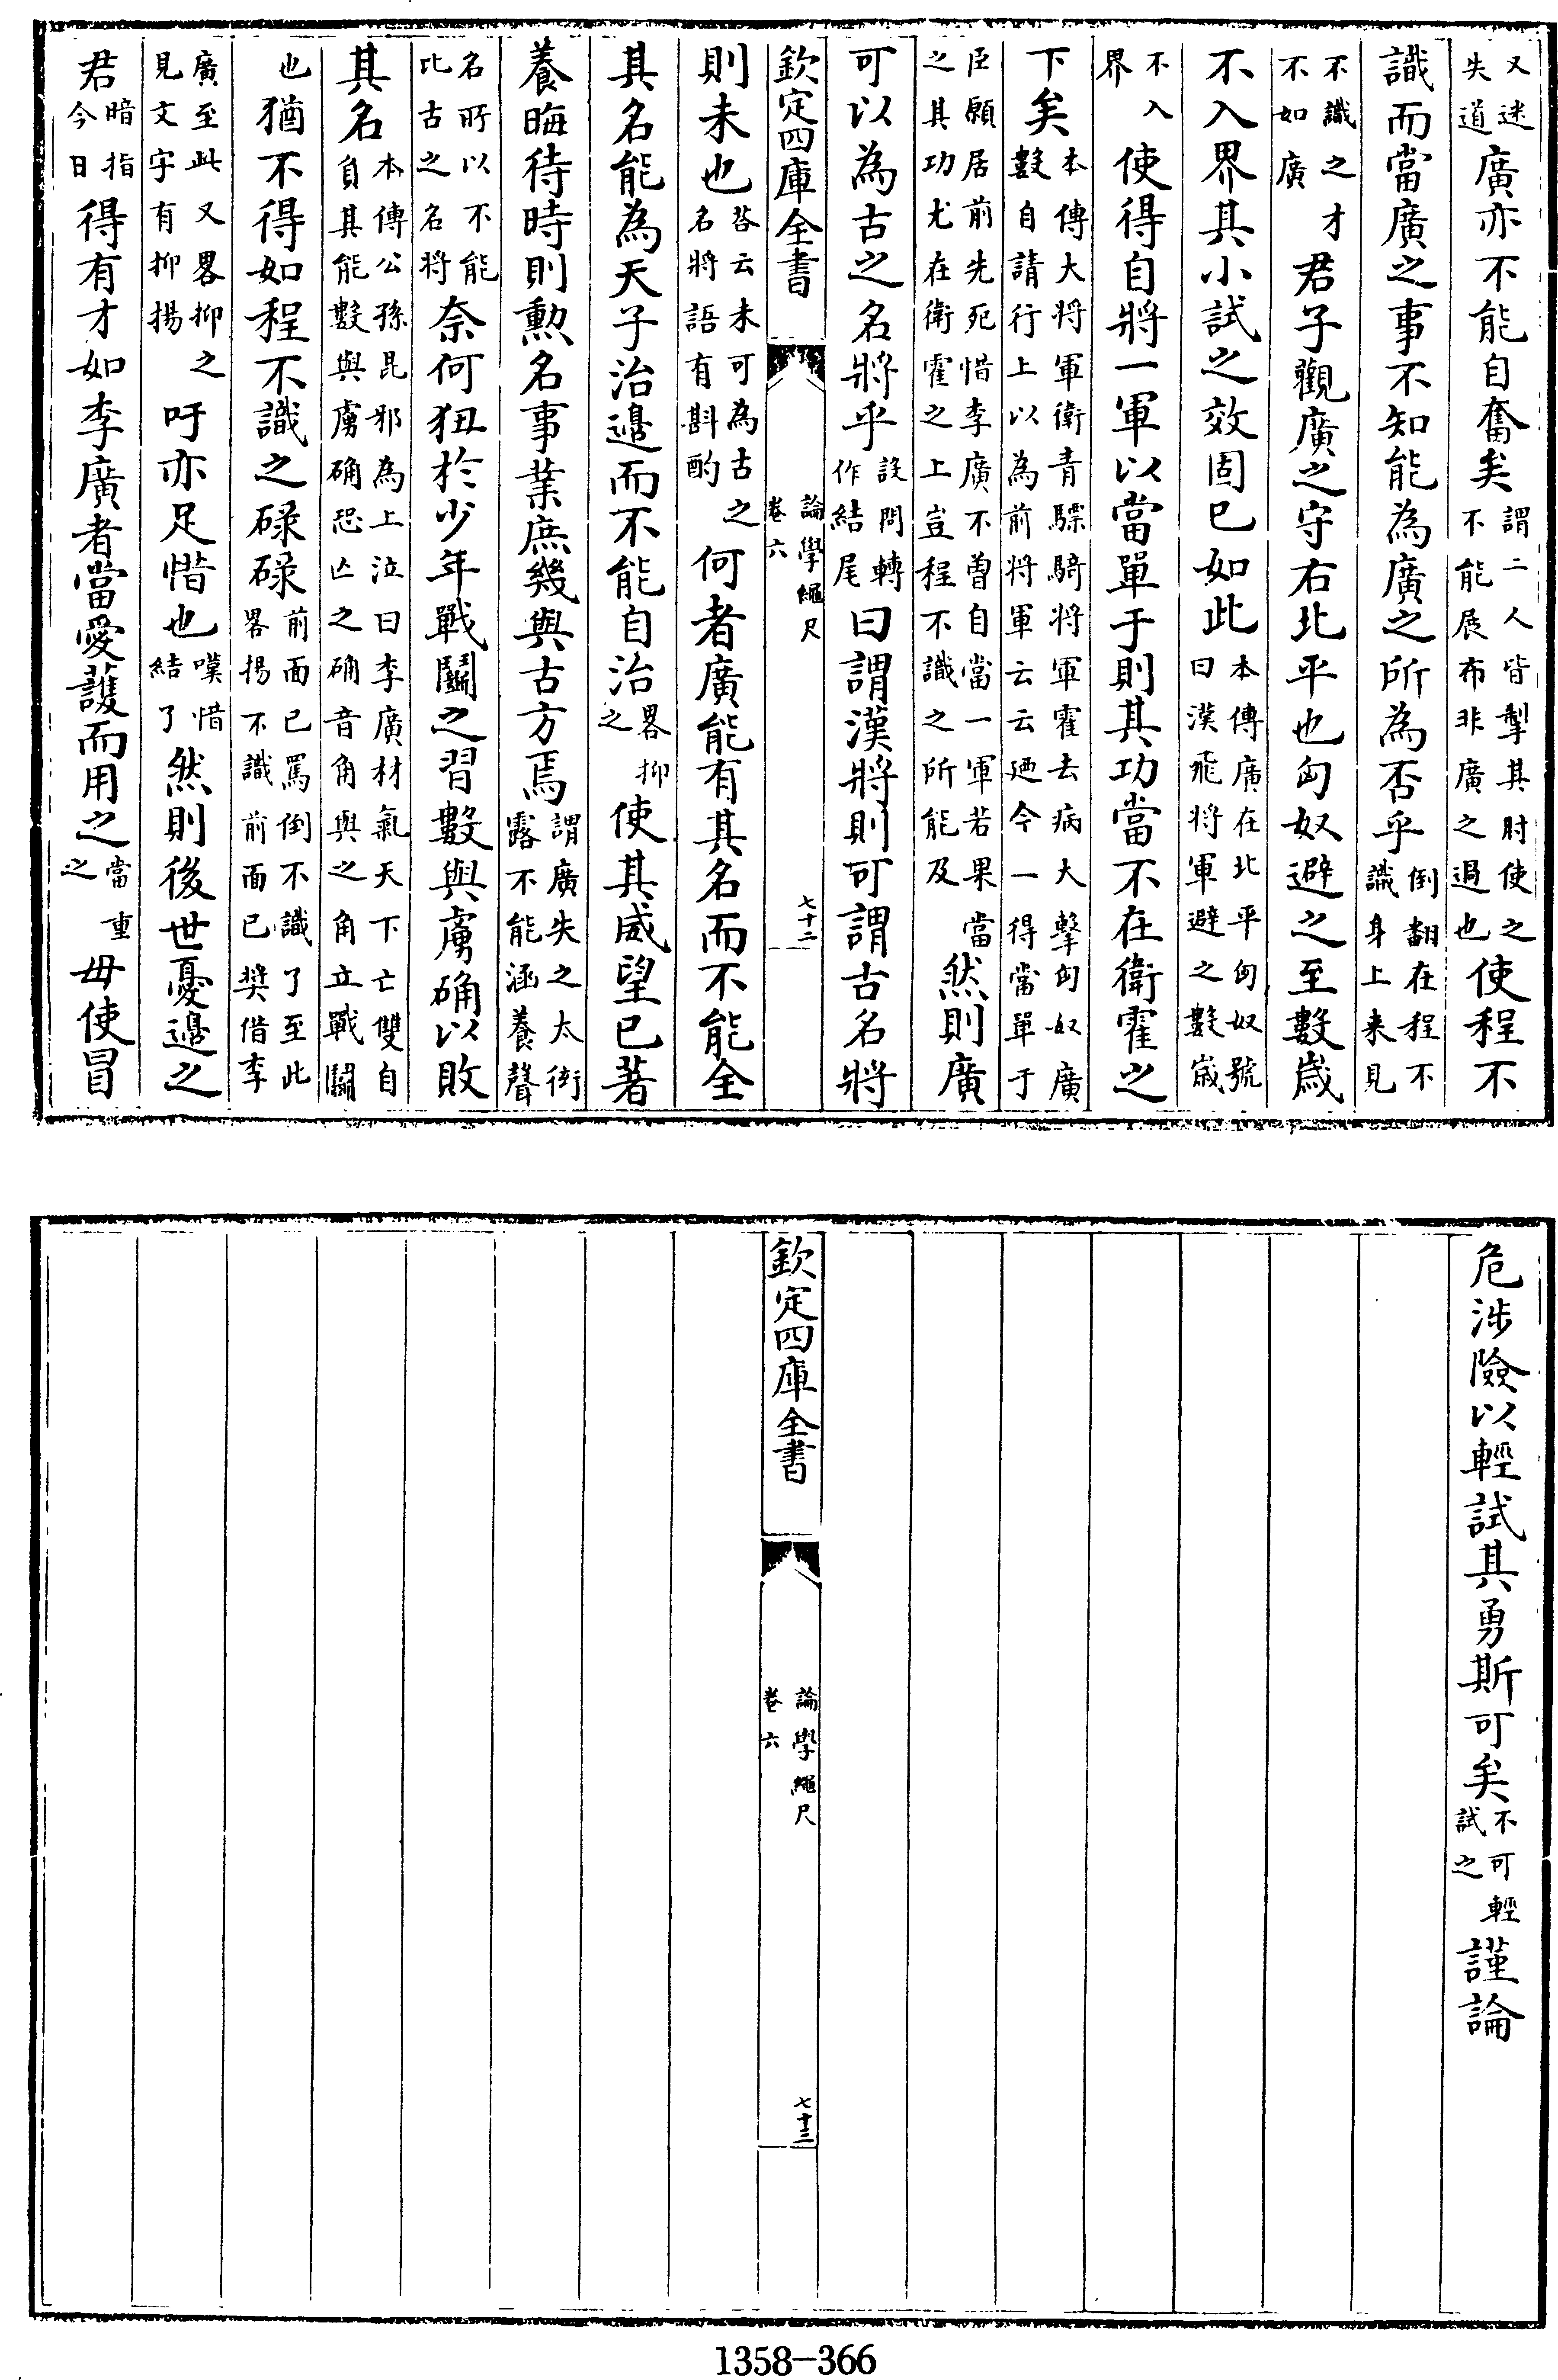 又迷失道廣亦不能自奮矣謂二人皆掣其肘使之不能展布非廣之過也使程不
識而當廣之事不知能為廣之所為否乎倒翻在程不識身上来見
不識之才不如廣君子觀廣之守右北平也匈奴避之至數歲
不入界其小試之效固已如此本傳廣在北平匈奴號曰漢飛將軍避之數嵗
不入界使得自將一軍以當單于則其功當不在衛霍之
下矣本傳大將軍衛青驃騎將軍霍去病大擊匈奴廣數自請行上以為前將軍云云廼今一得當單于
臣願居前先死惜李廣不曽自當一軍若果當之其功尤在衛霍之上豈程不識之所能及然則廣
可以為古之名將乎設問轉作結尾曰謂漢將則可謂古名將
欽定四庫全書
論學繩尺
卷六
七十二
則未也咎云未可為古之名將語有斟酌何者廣能有其名而不能全
其名能為天子治邉而不能自治畧抑之使其威望已著
養晦待時則勲名事業庶幾與古方焉謂廣失之太衒露不能涵養聲
名所以不能比古之名將奈何狃於少年戰鬬之習數與虜确以敗
其名本傳公孫昆邪為上泣曰李廣材氣天下亡雙自負其能數與虜确恐亡之确音角與之角立戰鬬
也猶不得如程不識之碌碌前面已罵倒不識了至此畧揚不識前面已奬借李
廣至此又畧抑之見文字有抑揚吁亦足惜也嘆惜結了然則後世憂邉之
君暗指今日得有才如李廣者當愛䕶而用之當重之毋使冒
危涉險以輕試其勇斯可矣不可輕試之謹論
欽定四庫全書
論學繩尺
卷六
七十三
1358-366